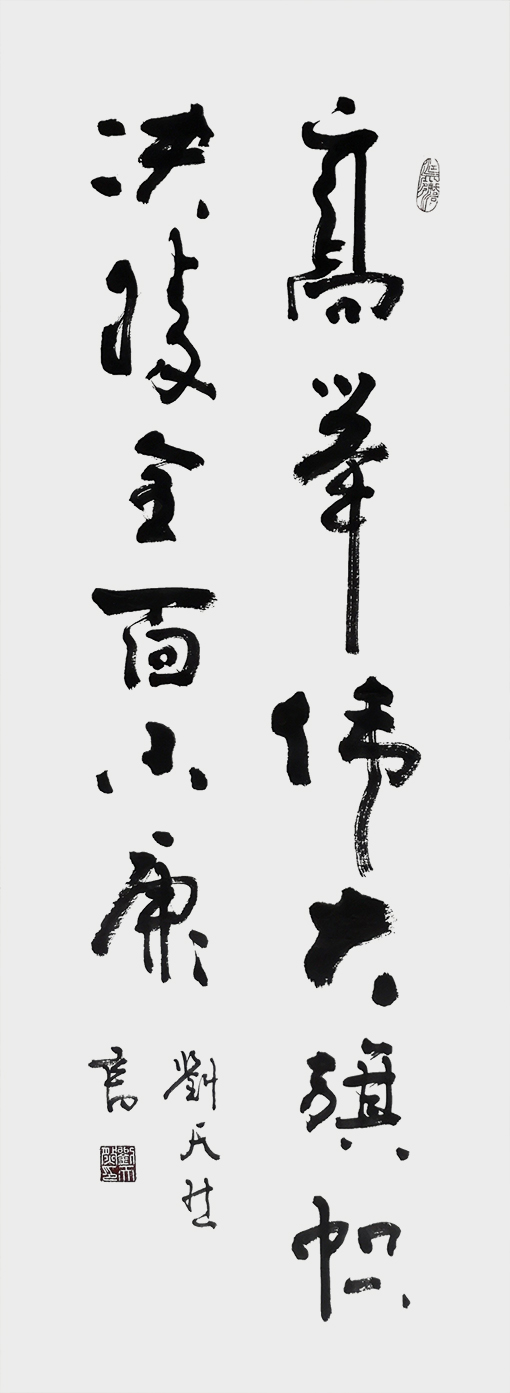 高举伟大旗帜
决胜全面小康
劉天
書